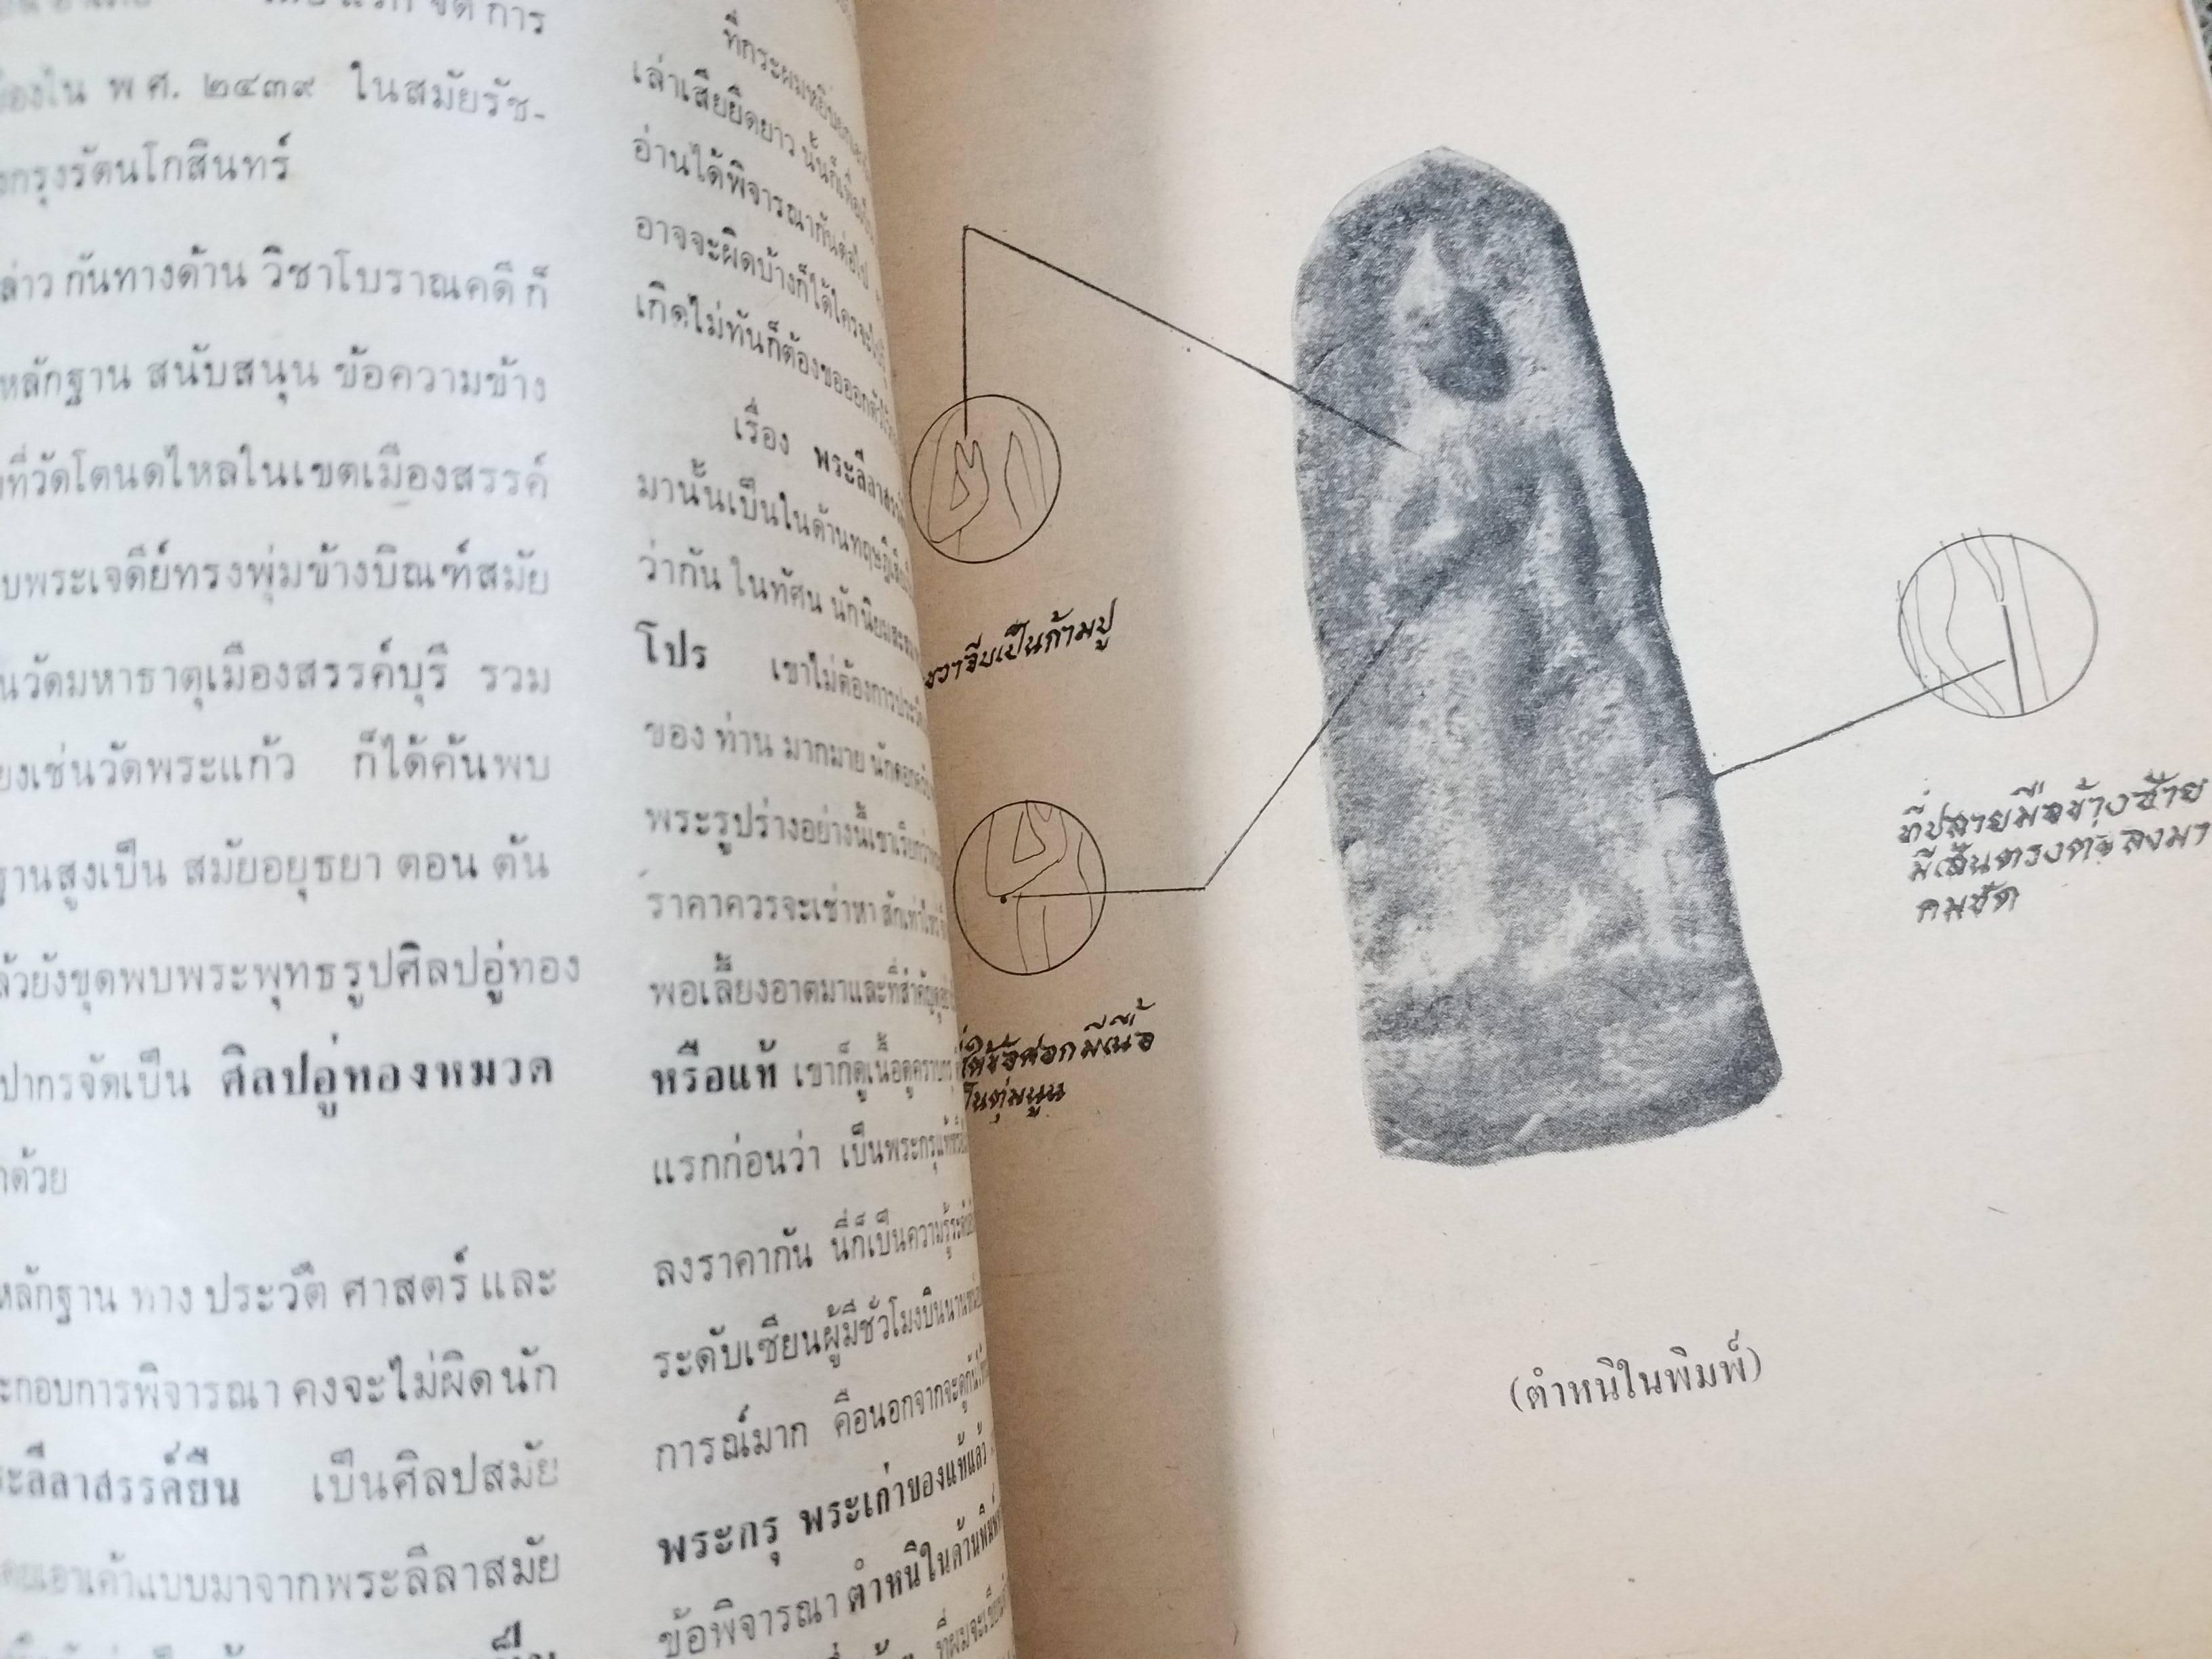 จัดการ
พ ศ. ๒๔๓๙ ในสมัยรัช-
กรุงรัตนโกสินทร์
กันทางด้าน วิชาโบราณคดี ก็
หลักฐาน สนับสนุน ข้อความข้าง
ที่วัดโตนดไหลในเขตเมืองสรรค์
พระเจดีย์ทรงพุ่มข้าวบิณฑ์สมัย
วัดมหาธาตุเมืองสรรค์บุรี รวม
เช่นวัดพระแก้ว ก็ได้ค้นพบ
ฐานสูงเป็น สมัยอยุธยา ตอน ต้น
ยังขุดพบพระพุทธรูปศิลปอู่ทอง
ปากรจัดเป็น ศิลปอู่ทองหมวด
ด้วย
หลักฐาน ทาง ประวัติ ศาสตร์ และ
กอบการพิจารณา คงจะไม่ผิด นัก
ลีลาสรรค์ยืน เป็นศิลปสมัย
เอาเค้าแบบมาจากพระลีลาสมัย
ที่กระผมหยิบยก
เล่าเสียยืดยาว นั้นก็เพื่อ
อ่านได้พิจารณากันต่อไป
อาจจะผิดบ้างก็ได้ใครจะ
เกิดไม่ทันก็ต้องขอออกตัว
เรื่อง พระลีลาสรร
มานั้นเป็นในด้านทฤษฎี
ว่ากัน ในทัศน นักนิยม
โปร เขาไม่ต้องการประวัติ
ของ ท่าน มากมาย นัก
พระรูปร่างอย่างนี้เขาเรียกว่า
ราคาควรจะเช่าหา สักเท่าไหร่
พอเลี้ยงอาตมาและที่สำคัญ
หรือแท้ เขาก็ดูเนื้อดูคราบกรุ
แรกก่อนว่า เป็นพระกรุแท้
ลงราคากัน นี่ก็เป็นความรู้ระดับ
ระดับเซียนผู้มีชั่วโมงบินนาน
การณ์มาก คือนอกจากจะดูกัน
พระกรุ พระเก่าของแท้แล้ว
ข้อพิจารณา ตำหนิในด้านพิมพ์
ที่ผมจะเขียน
ขวาจีบเป็นก้ามปู
ใต้ข้อศอกมีเนื้อ
ตุ่มนูน
ที่ปลายมือข้างซ้าย
มีเส้นตรงต่อลงมา
คมชัด
(ตำหนิในพิมพ์)